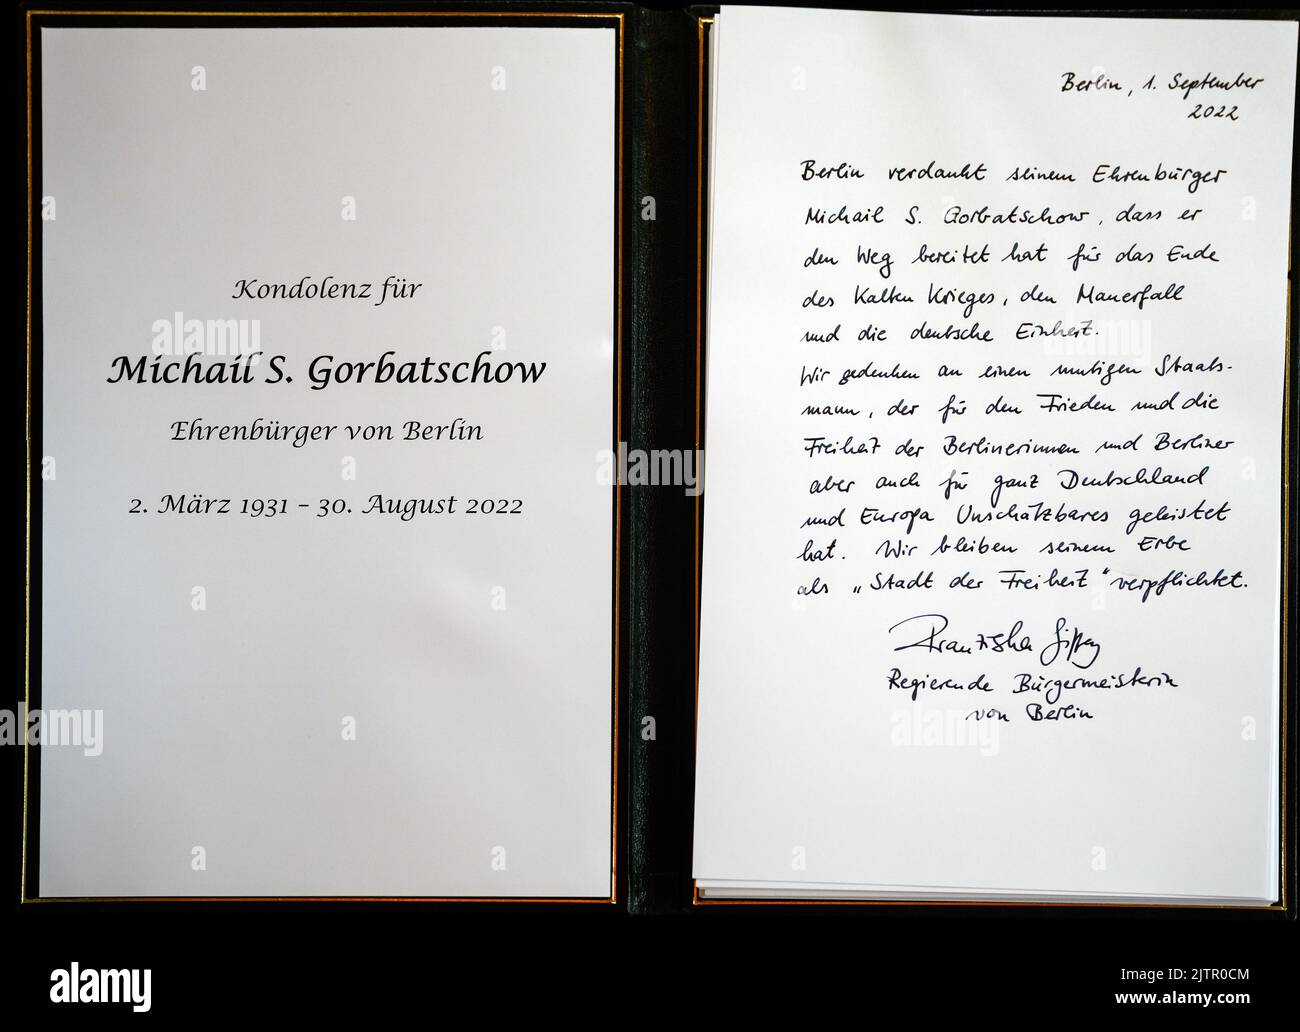 Kondolenz für
Michail S. Gorbatschow
Ehrenbürger von Berlin
2. März 1931 – 30. August 2022
Berlin, 1. September
2022
Berlin verdankt seinem Ehrenbürger
Michail S. Gorbatschow, dass er
den Weg bereitet hat für das Ende
des Kalten Krieges, den Mauerfall
und die deutsche Einheit.
Wir gedenken an einen mutigen Staats-
mann, der für den Frieden und die
Freiheit der Berlinerinnen und Berliner
aber auch für ganz Deutschland
und Europa Unschätzbares geleistet
hat. Wir bleiben seinem Erbe
als „Stadt der Freiheit" verpflichtet.
Franziska Giffey
Regierende Bürgermeisterin
von Berlin
alamy
Image ID: 2JTR0CM
www.alamy.com